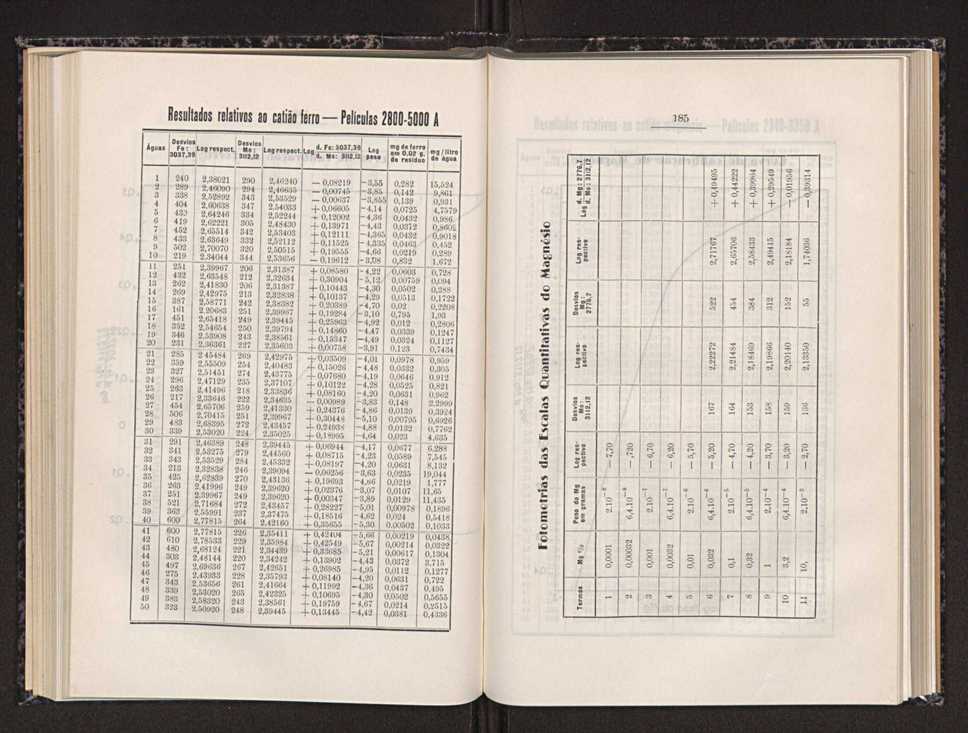 Resultados relativos ao catião ferro — Películas 2800-5000 A
Águas Desvios Fe: 3037,39 Log respect. Desvios Mo: 3112,12 Log respect. Log d. Fe: 3037,39 / d. Mo: 3112,12 Log peso mg de ferro em 0,02 g. de resíduo mg / litro de água
1 240 2,38021 290 2,46240 — 0,08219 —3,55 0,282 15,524
2 289 2,46090 294 2,46835 — 0,00745 —3,85 0,142 9,861
3 338 2,52892 343 2,53529 — 0,00637 —3,855 0,139 0,931
4 404 2,60638 347 2,54033 + 0,06605 —4,14 0,0725 4,7579
5 439 2,64246 334 2,52244 + 0,12002 —4,36 0,0432 0,986
6 419 2,62221 305 2,48430 + 0,13971 —4,43 0,0372 0,8605
7 452 2,65514 342 2,53403 + 0,12111 —4,365 0,0432 0,9018
8 433 2,63649 332 2,52112 + 0,11525 —4,335 0,0463 0,452
9 502 2,70070 320 2,50515 + 0,19555 —4,66 0,0219 0,289
10 219 2,34044 344 2,53656 — 0,19612 —3,08 0,832 1,672
11 251 2,39967 206 2,31387 + 0,08580 —4,22 0,0603 0,728
12 432 2,63548 212 2,32634 + 0,30904 —5,12 0,00759 0,094
13 262 2,41830 206 2,31387 + 0,10443 —4,30 0,0502 0,288
14 269 2,42975 213 2,32838 + 0,10137 —4,29 0,0513 0,1722
15 387 2,58771 242 2,38382 + 0,20389 —4,70 0,02 0,2208
16 161 2,20683 251 2,39967 + 0,19284 —3,10 0,795 1,93
17 451 2,65418 249 2,39445 + 0,25963 —4,92 0,012 0,2806
18 352 2,54654 250 2,39794 + 0,14860 —4,47 0,0339 0,1247
19 346 2,53908 243 2,38561 + 0,15347 —4,49 0,0324 0,1127
20 231 2,36361 227 2,35603 + 0,00758 —3,91 0,123 0,7434
21 285 2,45484 269 2,42975 + 0,03509 —4,01 0,0978 0,959
22 359 2,55509 254 2,40483 + 0,15026 —4,48 0,0332 0,305
23 327 2,51451 274 2,43775 + 0,07680 —4,19 0,0646 0,912
24 296 2,47129 235 2,37107 + 0,10122 —4,28 0,0525 0,821
25 263 2,41496 218 2,33836 + 0,08160 —4,20 0,0631 0,962
26 217 2,33646 222 2,34635 — 0,00989 —3,83 0,148 2,2999
27 454 2,65706 259 2,41330 + 0,24376 —4,86 0,0139 0,3924
28 506 2,70415 251 2,39967 + 0,30448 —5,10 0,00795 0,6926
29 483 2,68395 272 2,43457 + 0,24938 —4,88 0,0132 0,7762
30 339 2,53020 224 2,35025 + 0,18995 —4,64 0,023 4,635
31 291 2,46389 248 2,39445 + 0,06944 —4,17 0,0677 6,288
32 341 2,53275 279 2,44560 + 0,08715 —4,23 0,0589 7,545
33 343 2,53529 284 2,45332 + 0,08197 —4,20 0,0631 8,132
34 213 2,32838 246 2,39094 — 0,06256 —3,63 0,0235 19,044
35 425 2,62839 270 2,43136 + 0,19693 —4,66 0,0219 1,777
36 263 2,41996 249 2,39620 + 0,02376 —3,07 0,0107 11,65
37 251 2,39967 249 2,39620 + 0,00347 —3,89 0,0129 11,435
38 521 2,71684 272 2,43457 + 0,28227 —5,01 0,00978 0,1896
39 363 2,55991 237 2,37475 + 0,18516 —4,62 0,024 0,5418
40 600 2,77815 264 2,42160 + 0,35655 —5,30 0,00502 0,1033
41 600 2,77815 226 2,35411 + 0,42404 —5,66 0,00219 0,0438
42 610 2,78533 229 2,35984 + 0,42549 —5,67 0,00214 0,0322
43 480 2,68124 221 2,34439 + 0,33685 —5,21 0,00617 0,1304
44 303 2,48144 220 2,34242 + 0,13902 —4,43 0,0372 3,715
45 497 2,69636 267 2,42651 + 0,26985 —4,95 0,0112 0,1277
46 275 2,43933 228 2,35793 + 0,08140 —4,20 0,0631 0,722
47 343 2,53656 261 2,41664 + 0,11992 —4,36 0,0437 0,495
48 339 2,53020 265 2,42325 + 0,10695 —4,30 0,0502 0,5655
49 383 2,58320 243 2,38561 + 0,19759 —4,67 0,0214 0,2515
50 323 2,50920 248 2,39445 + 0,13445 —4,42 0,0381 0,4336
185
Fotometrias das Escalas Quantitativas do Magnésio
Termos Mg % Peso do Mg em gramas Log respectivo Desvios Mo: 3112,12 Log respectivo Desvios Mg: 2776,7 Log respectivo Log d. Mg: 2776,7 / d. Mo: 3112,12
1 0,0001 2.10⁻⁸ — 7,70
2 0,00032 6,4.10⁻⁸ — ,720
3 0,001 2.10⁻⁷ — 6,70
4 0,0032 6,4.10⁻⁷ 6,20
5 0,01 2.10⁻⁶ — 5,70
6 0,032 6,4.10⁻⁶ — 5,20 167 2,22272 522 2,71767 + 0,49495
7 0,1 2.10⁻⁵ — 4,70 164 2,21484 454 2,65706 + 0,44222
8 0,32 6,4.10⁻⁵ — 4,20 153 2,18469 384 2,58433 + 0,39994
9 1 2.10⁻⁴ — 3,70 158 2,19866 312 2,49415 + 0,29549
10 3,2 6,4.10⁻⁴ — 3,20 159 2,20140 152 2,18184 — 0,01956
11 10, 2.10⁻³ — 2,70 136 2,13350 55 1,74036 — 0,39314